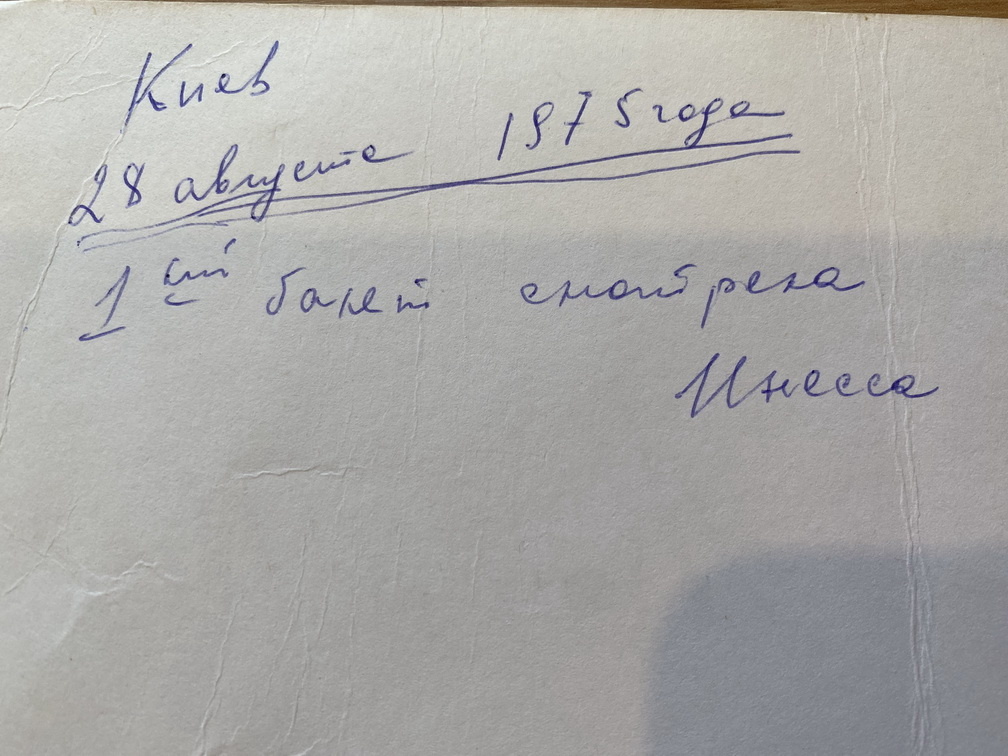 Киев
28 августа 1975 года
1ый балет смотрела
Инесса